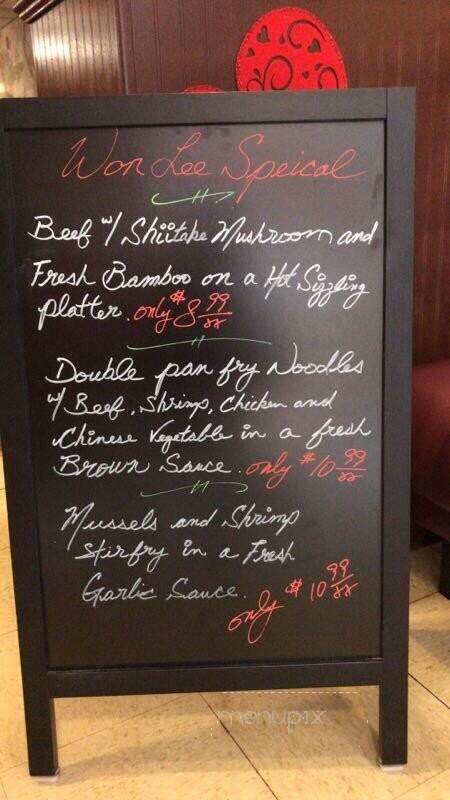 Won Lee Speical
Beef w/ Shiitake Mushroom and
Fresh Bamboo on a Hot Sizzling
platter. only $8 99/xx
Double pan fry Noodles
w/ Beef, Shrimp, Chicken and
Chinese Vegetable in a fresh
Brown Sauce. only $10 99/xx
Mussels and Shrimp
stirfry in a Fresh
Garlic Sauce.
only $10 99/xx
menupix